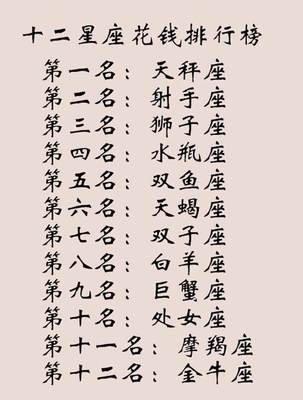 十二星座花钱排行榜
第一名：天秤座
第二名：射手座
第三名：狮子座
第四名：水瓶座
第五名：双鱼座
第六名：天蝎座
第七名：双子座
第八名：白羊座
第九名：巨蟹座
第十名：处女座
第十一名：摩羯座
第十二名：金牛座